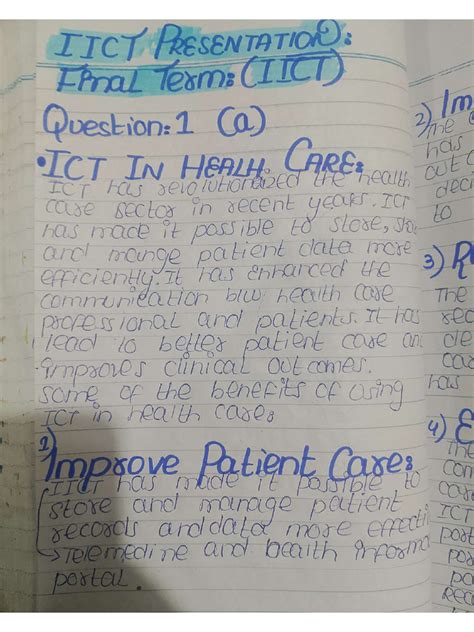 IICT PRESENTATION:
Final Term: (IICT)
Question: 1 (a)
• ICT IN HEALH CARE:
ICT has revolutionized the health
care sector in recent years. ICT
has made it possible to store,
and mange patient data more
efficiently. It has enhanced the
communication b/w health care
professional and patients. It has
lead to better patient care an
improves clinical outcomes.
some of the benefits of using
ICT in health care:
Improve Patient Care:
IICT has made it possible to
store and manage patient
records and data more effecti
→ Telemedine and health informa
portal.
2) Im
The
has
out
deci
to
3) R
The
rec
cle
car
has
4) E
The
com
ICT
port